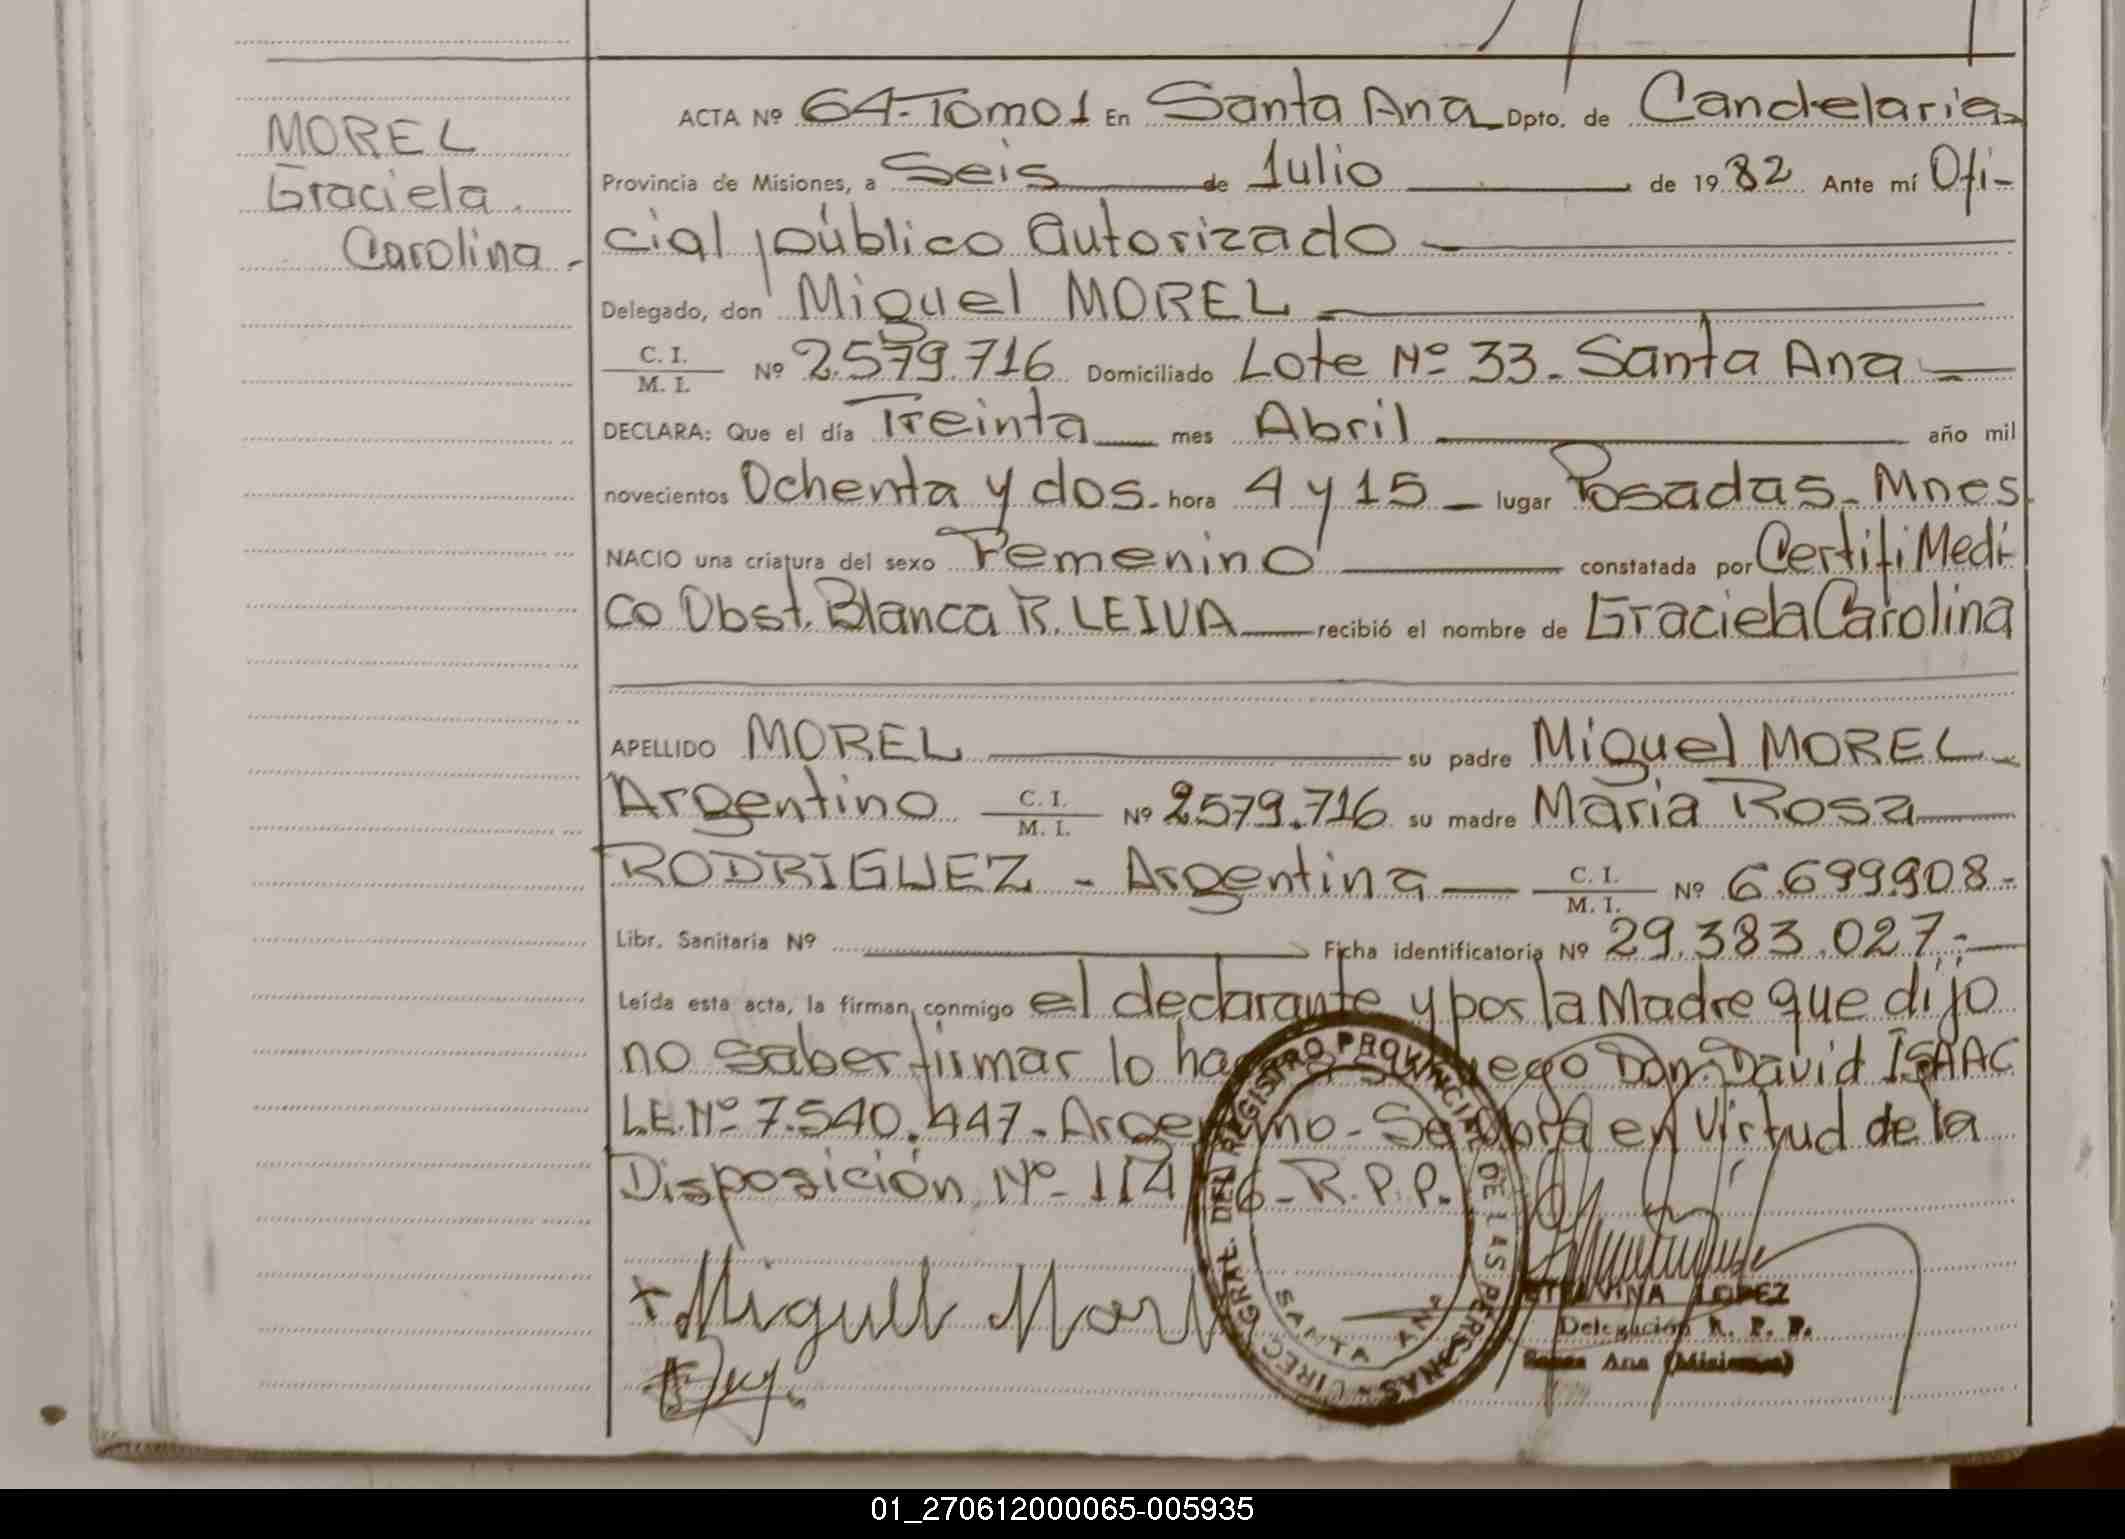 MOREL
Graciela
Carolina -
ACTA Nº 64-Tomo1 En Santa Ana Dpto. de Candelaria
Provincia de Misiones, a Seis de Julio de 1982 Ante mí Ofi-
cial público Autorizado
Delegado, don Miguel MOREL
C. I. / M. I. Nº 2.579.716 Domiciliado Lote Nº 33. Santa Ana
DECLARA: Que el día Treinta mes Abril año mil
novecientos Ochenta y dos. hora 4 y 15 lugar Posadas. Mnes
NACIO una criatura del sexo Femenino constatada por Certifi Medi-
co Obst. Blanca R. LEIVA recibió el nombre de Graciela Carolina
APELLIDO MOREL su padre Miguel MOREL
Argentino C. I. / M. I. Nº 2.579.716 su madre Maria Rosa
RODRIGUEZ - Argentina C. I. / M. I. Nº 6.699.908-
Libr. Sanitaria Nº Ficha identificatoria Nº 29.383.027,-
Leída esta acta, la firman conmigo el declarante y por la Madre que dijo
no saber firmar lo hace a su ruego Don. David ISAAC
L.E. Nº 7.540.447- Argentino- Se labra en Virtud de la
Disposición Nº 114/ 6-R.P.P.
Miguel Morel
DIREC. GRAL. DEL REGISTRO PROVINCIAL DE LAS PERSONAS
SANTA ANA
LOPEZ
Delegación R. P. P.
Santa Ana (Misiones)
01_270612000065-005935